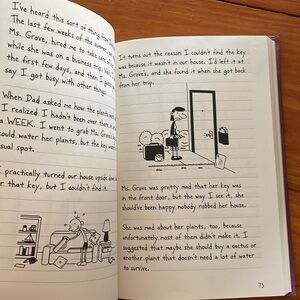 I've heard this sort of thing from
The last few weeks of the summer
Ms. Grove, hired me to take care of
while she was on a business trip.
the first few days, and then I
say I got busy with other things.
When Dad asked me how the plants were
I realized I hadn't been over there in
a WEEK. I went to grab Ms. Grove's
could water her plants, but the key wasn't
usual spot.
practically turned our house upside down
r that key, but I couldn't find it.
It turns out the reason I couldn't find the key
was because it wasn't in our house. I'd left it at
Ms. Grove's, and she found it when she got back
from her trip.
Ms. Grove was pretty mad that her key was
in the front door, but the way I see it, she
should've been happy nobody robbed her house.
She was mad about her plants, too, because
unfortunately most of them didn't make it. I
suggested that maybe she should buy a cactus or
another plant that doesn't need a lot of water
to survive.
73